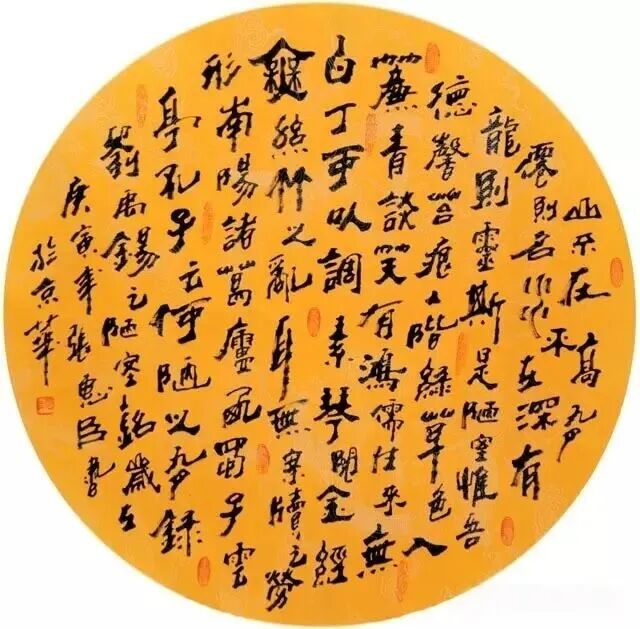 山不在高有
僊則名水不在深有
龍則靈斯是陋室惟吾
德馨苔痕上階綠草色入
簾青談笑有鴻儒往來無
白丁可以調素琴閱金經
無絲竹之亂耳無案牘之勞
形南陽諸葛廬西蜀子雲
亭孔子云何陋之有錄
劉禹錫之陋室銘歲在
庚寅年張惠臣書
於京華